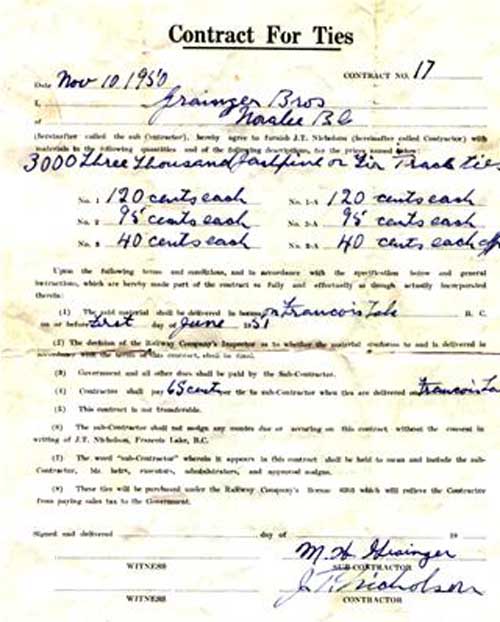 Contract For Ties
Date Nov 10 1950 CONTRACT NO. 17
I, Grainger Bros
of Noralee B C
(hereinafter called the sub Contractor), hereby agree to furnish J.T. Nicholson (hereinafter called Contractor) with
materials in the following quantities and of the following descriptions, for the prices named below:
3000 Three Thousand Jackpine or Fir Track ties
No. 1 120 cents each No. 1-A 120 cents each
No. 2 95 cents each No. 2-A 95 cents each
No. 3 40 cents each No. 3-A 40 cents each
Upon the following terms and conditions, and in accordance with the specification below and general
instructions, which are hereby made part of the contract as fully and effectually as though actually incorporated
therein:
(1) The said material shall be delivered in on Francois Lake B. C.
on or before First day of June 1951
(2) The decision of the Railway Company's Inspector as to whether the material conforms to and is delivered in
accordance with the terms of this contract, shall be final.
(3) Government and all other dues shall be paid by the Sub-Contractor.
(4) Contractor shall pay 65 cents per tie to sub-Contractor when ties are delivered on Francois La
(5) This contract is not transferable.
(6) The sub-Contractor shall not assign any monies due or accruing on this contract without the consent in
writing of J.T. Nicholson, Francois Lake, B.C.
(7) The word "sub-Contractor" wherein it appears in this contract shall be held to mean and include the sub-
Contractor, his heirs, executors, administrators, and approved assigns.
(8) These ties will be purchased under the Railway Company's license which will relieve the Contractor
from paying sales tax to the Government.
Signed and delivered day of 19
M. H. Grainger
WITNESS SUB CONTRACTOR
J. T. Nicholson
WITNESS CONTRACTOR